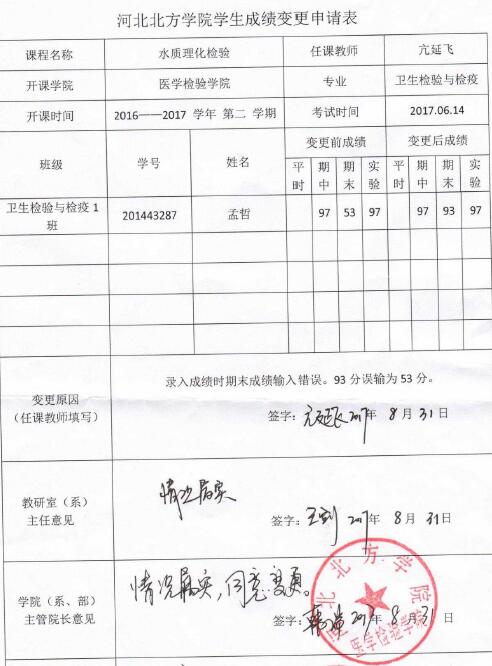 河北北方学院学生成绩变更申请表
课程名称 水质理化检验 任课教师 亢延飞
开课学院 医学检验学院 专业 卫生检验与检疫
开课时间 2016——2017 学年 第二 学期 考试时间 2017.06.14
班级 学号 姓名 变更前成绩 变更后成绩
平时 期中 期末 实验 平时 期中 期末 实验
卫生检验与检疫1班 201443287 孟哲 97 53 97 97 93 97
变更原因
(任课教师填写)
录入成绩时期末成绩输入错误。93 分误输为 53 分。
签字: 亢延飞 2017年 8月31日
教研室(系)
主任意见
情况属实
签字: 2017年 8月31日
学院(系、部)
主管院长意见
情况属实,同意变更。
签字: 2017年 8月31日
河北北方学院
医学检验学院